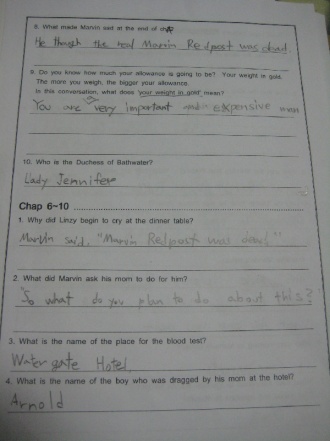 8. What made Marvin sad at the end of
He though the real Marvin Redpost was dead.
9. Do you know how much your allowance is going to be? Your weight in gold.
The more you weigh, the bigger your allowance.
In this conversation, what does 'your weight in gold' mean?
You are very important expensive man
10. Who is the Duchess of Bathwater?
Lady Jennifer
Chap 6~10
1. Why did Linzy begin to cry at the dinner table?
Marvin said, "Marvin Redpost was dead"
2. What did Marvin ask his mom to do for him?
"So what do you plan to do about this?"
3. What is the name of the place for the blood test?
Watergate Hotel
4. What is the name of the boy who was dragged by his mom at the hotel?
Arnold